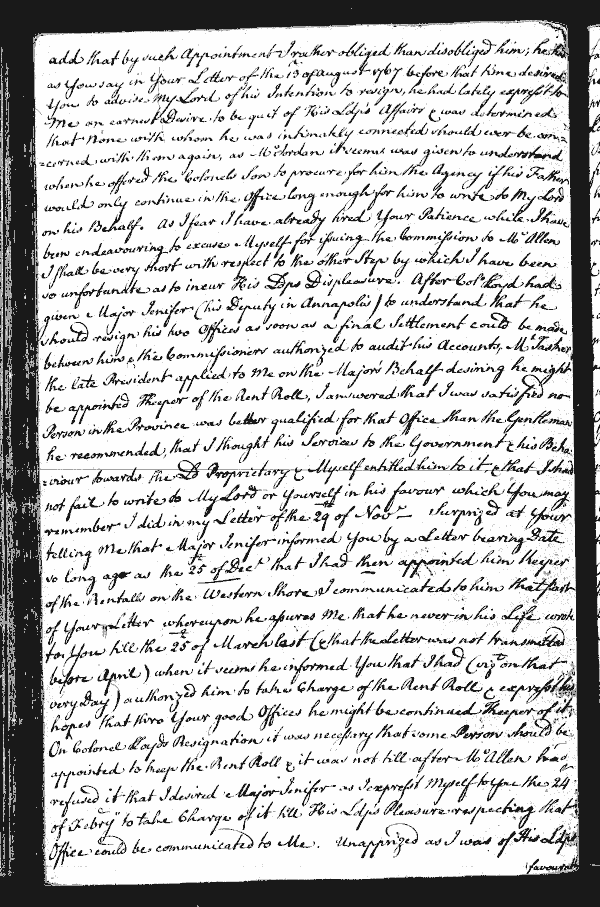 add that by such Appointment I rather obliged than disobliged him; he had
as You say in Your Letter of the 13 of August 1767 before that time desired
You to advise My Lord of his Intention to resign, he had lately exprest to
Me an earnest Desire to be quit of His Ldps Affairs & was determined
that None with whom he was intimately connected should ever be con-
=cerned with them again, as Mr Jordan it seems was given to understand
when he offered the Colonels Son to procure for him the Agency if his Father
would only continue in the Office long enough for him to write to My Lord
on his Behalf. As I fear I have already tired Your Patience while I have
been endeavouring to excuse Myself for issuing the Commission to Mr Allen
I shall be very short with respect to the other Step by which I have been
so unfortunate as to incur His Ldps Displeasure. After Col. Lloyd had
given Major Jenifer (his Deputy in Annapolis) to understand that he
should resign his two Offices as soon as a final Settlement could be made
between him & the Commissioners authorized to audit his Accounts, Mr Tasker
the late President applied to Me on the Majors Behalf desiring he might
be appointed Keeper of the Rent Roll, I answered that I was satisfied no
Person in the Province was better qualified for that Office than the Gentleman
he recommended, that I thought his Services to the Government & his Beha-
=viour towards the Ld Proprietary & Myself entitled him to it & that I should
not fail to write to My Lord or Yourself in his favour which You may
remember I did in my Letter of the 29th of Novr Surprized at Your
telling Me that Major Jenifer informed You by a Letter bearing Date
so long ago as the 25 of Decr that I had then appointed him Keeper
of the Rentalls on the Western Shore I communicated to him that part
of Your Letter whereupon he assures Me that he never in his Life wrote
to You till the 25 of March last (& that the Letter was not transmitted
before April) when it seems he informed You that I had (vizt on that
very Day) authorized him to take Charge of the Rent Roll & exprest his
hopes that thro Your good Offices he might be continued Keeper of it.
On Colonel Lloyds Resignation it was necessary that some Person should be
appointed to keep the Rent Roll & it was not till after Mr Allen had
refused it that I desired Major Jenifer as I exprest Myself to You the 24
of Febry to take Charge of it till His Ldps Pleasure respecting that
Office could be communicated to Me. Unapprized as I was of His Ldps
favourable